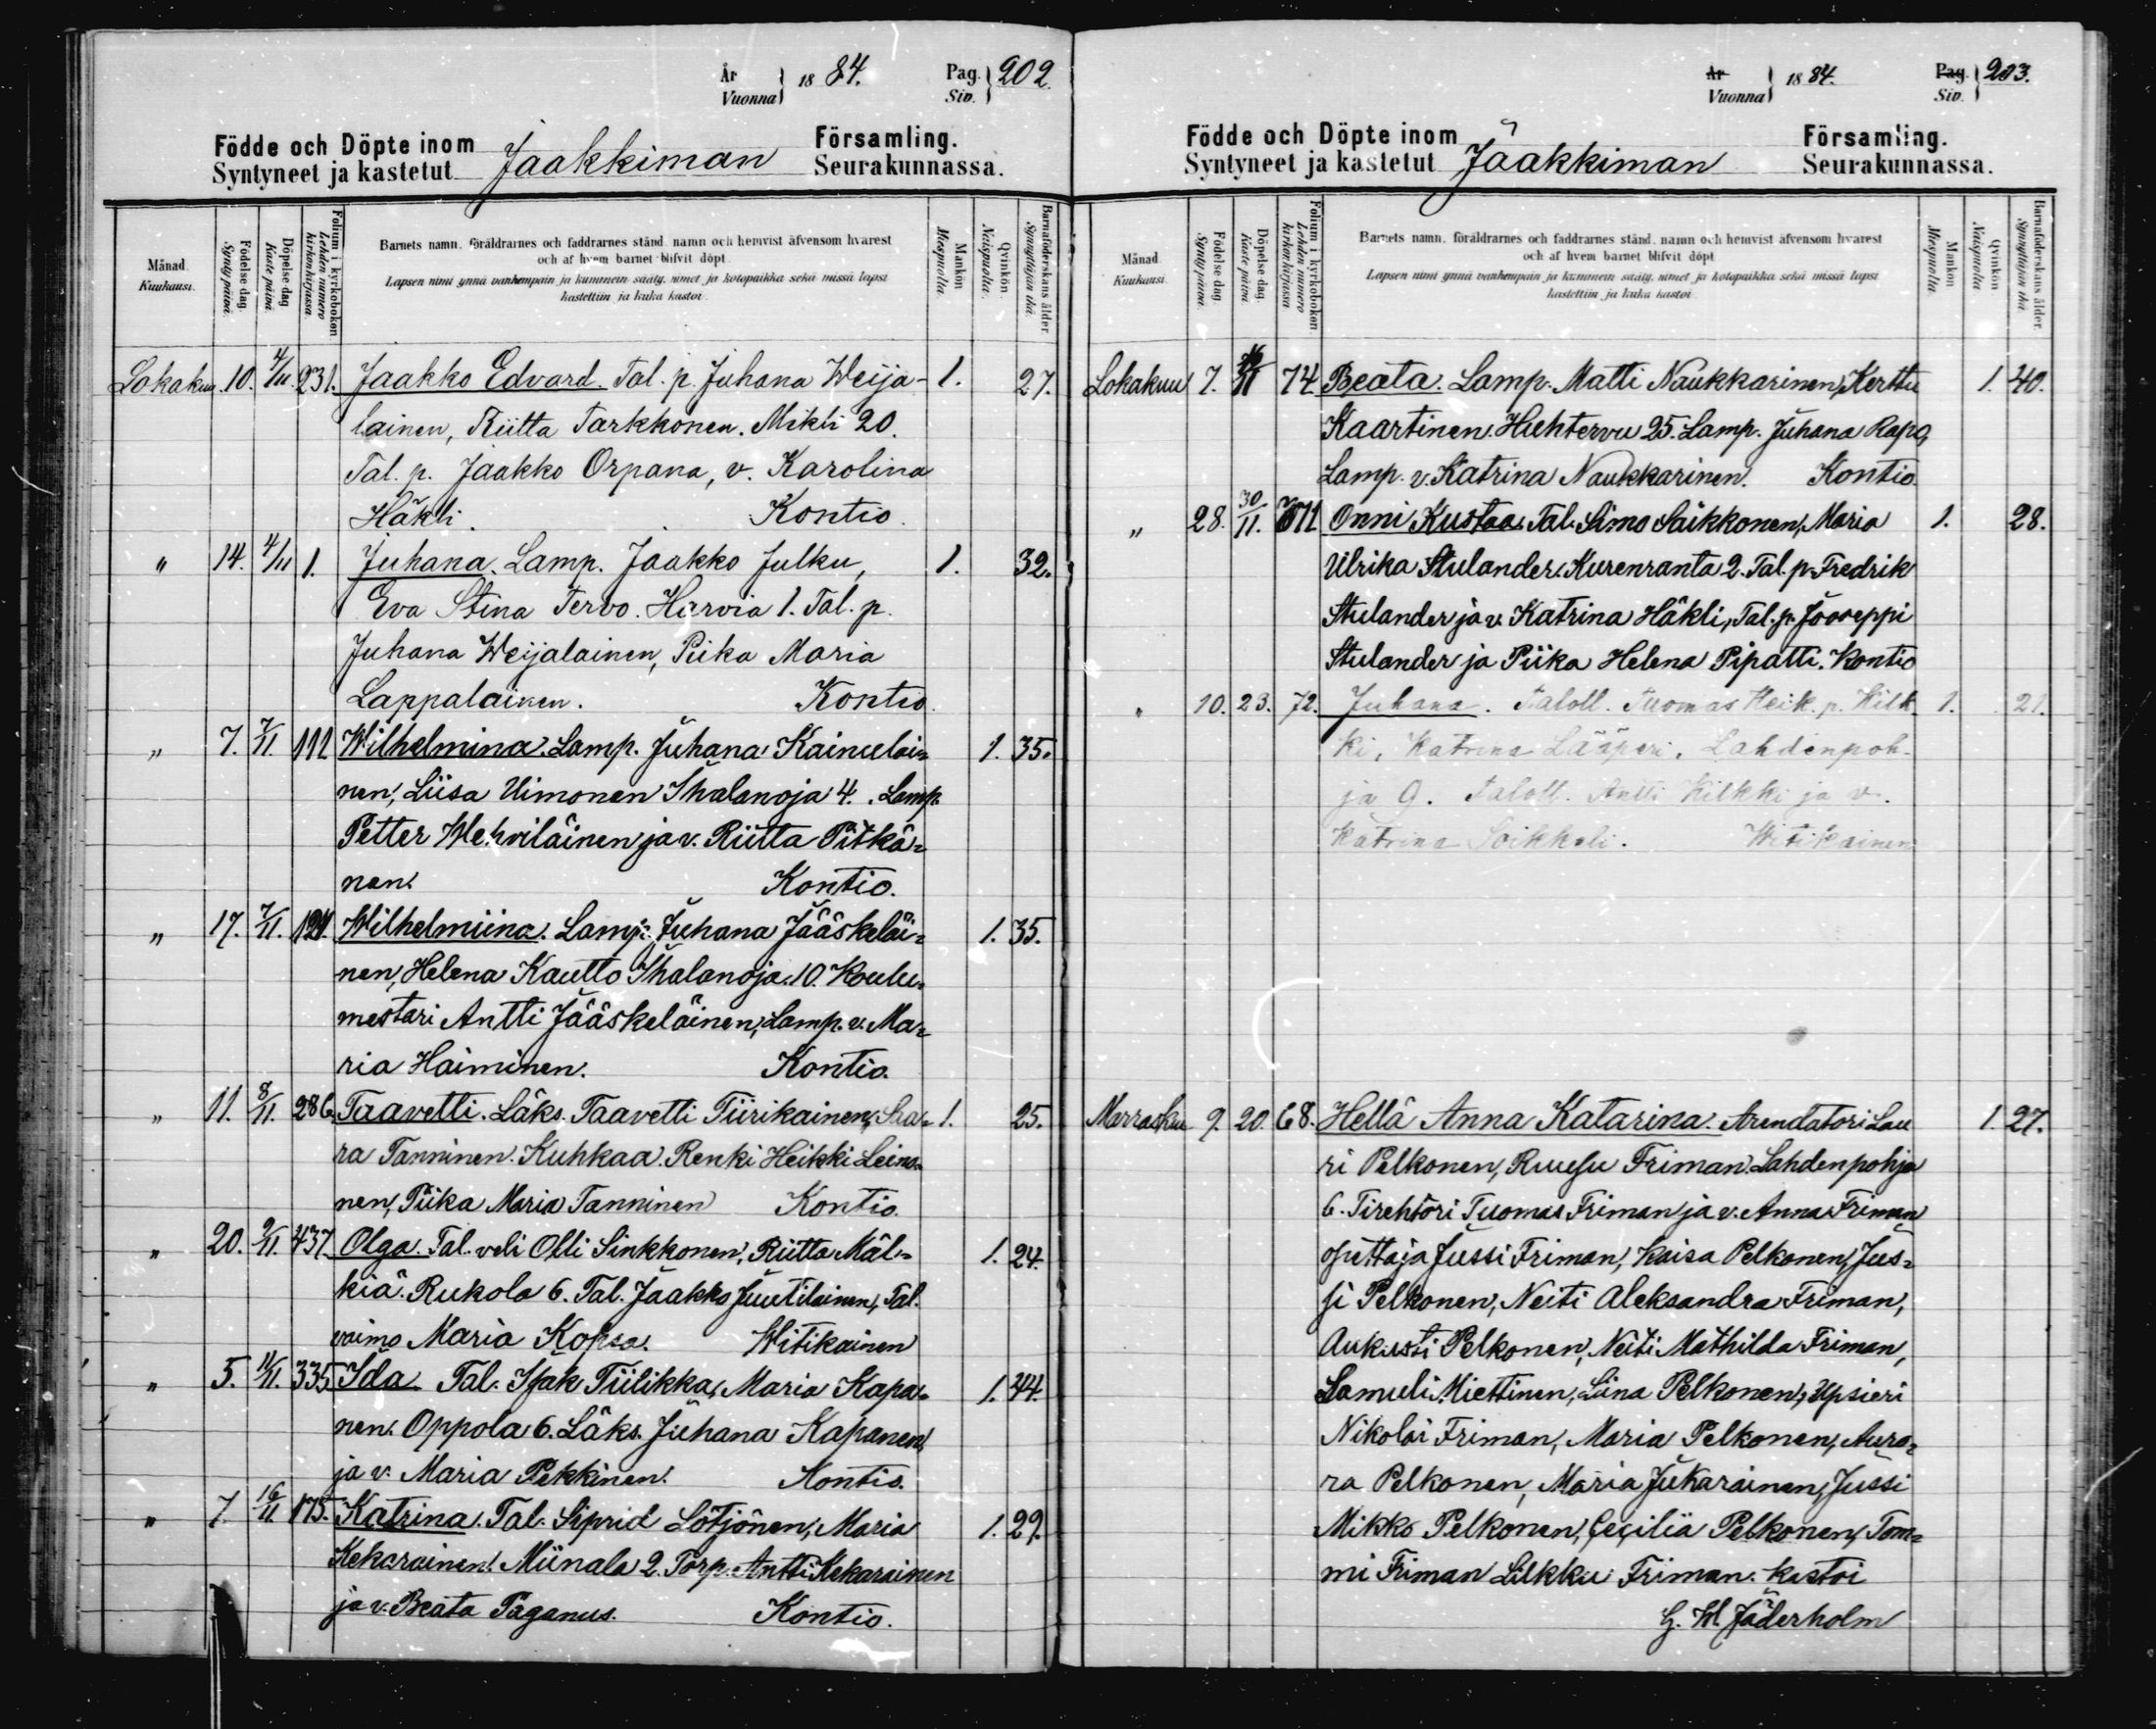 År
Vuonna } 1884. Pag.
Siv. } 202.
Födde och Döpte inom Jaakkiman Församling.
Syntyneet ja kastetut Seurakunnassa.
Månad
Kuukausi.
Födelse dag.
Synty päivä.
Döpelse dag
Kaste päivä
Folium i kyrkobokon
Lehden numero
kirkonkirjassa.
Barnets namn, föräldrarnes och faddrarnes stånd, namn och hemvist äfvensom hvarest
och af hvem barnet blifvit döpt.
Lapsen nimi ynnä vanhempain ja kummein sääty, nimet ja kotopaikka sekä missä lapsi
kastettiin ja kuka kastoi.
Mankön
Miespuolia.
Qvinkön.
Naispuolia.
Barnaföderskans ålder.
Synnyttäjän ikä.
Lokakuu 10. 4/11 231. Jaakko Edvard. Tal. p. Juhana Weija- 1. 27.
lainen, Riitta Tarkkonen. Mikli 20.
Tal. p. Jaakko Orpana, v. Karolina
Häkli. Kontio.
" 14. 4/11 1. Juhana. Lamp. Jaakko Julku, 1. 32.
Eva Stina Tervo. Harvia 1. Tal. p.
Juhana Weijalainen, Piika Maria
Lappalainen. Kontio.
" 7. 7/11. 112 Wilhelmina. Lamp. Juhana Kainulai= 1. 35.
nen, Liisa Uimonen Ihalanoja 4. Lamp.
Petter Wehviläinen ja v. Riitta Pitkä=
nen. Kontio.
" 17. 7/11. 124. Wilhelmiina. Lamp. Juhana Jääskeläi= 1. 35.
nen, Helena Kautto Ihalanoja 10. Koulu=
mestari Antti Jääskeläinen, Lamp. v. Ma=
ria Haiminen. Kontio.
" 11. 8/11. 286. Taavetti. Läks. Taavetti Tiirikainen, Saa= 1. 25.
ra Tanninen. Kuhkaa. Renki Heikki Leino=
nen, Piika Maria Tanninen Kontio.
" 20. 9/11. 437. Olga. Tal. veli Olli Sinkkonen, Riitta Mäl= 1. 24.
kiä. Rukola 6. Tal. Jaakko Juutilainen, Tal.
vaimo Maria Kopsa. Witikainen
" 5. 11/11. 335 Ida Tal. Isak Tiilikka, Maria Kapa= 1. 44.
nen. Oppola 6. Läks. Juhana Kapanen,
ja v. Maria Pekkinen. Kontio.
" 7. 16/11. 175. Katrina. Tal. Siprid Lötjönen, Maria 1. 29.
Kekarainen. Miinala 2. Torp. Antti Kekarainen
ja v. Beata Paganus. Kontio.
År
Vuonna } 1884. Pag.
Siv. } 203.
Födde och Döpte inom Jaakkiman Församling.
Syntyneet ja kastetut Seurakunnassa.
Månad
Kuukausi.
Födelse dag.
Synty päivä.
Döpelse dag.
Kaste päivä.
Folium i kyrkobokon
Lehden numero
kirkonkirjassa
Barnets namn, föräldrarnes och faddrarnes stånd, namn och hemvist äfvensom hvarest
och af hvem barnet blifvit döpt.
Lapsen nimi ynnä vanhempain ja kummein sääty, nimet ja kotopaikka sekä missä lapsi
kastettiin ja kuka kastoi.
Mankön
Miespuolia.
Qvinkön
Naispuolia
Barnaföderskans ålder.
Synnyttäjän ikä.
Lokakuu 7. 74 Beata. Lamp. Matti Naukkarinen, Kerttu 1. 40.
Kaartinen. Huhtervu 25. Lamp. Juhana Rapo,
Lamp. v. Katrina Naukkarinen. Kontio
" 28. 30/11. Onni Kustaa. Tal. Simo Saikkonen, Maria 1. 28.
Ulrika Stulander. Kurenranta 2. Tal. p. Fredrik
Stulander ja v. Katrina Häkli, Tal. p. Jooseppi
Stulander ja Piika Helena Pipatti. Kontio
" 10. 23. 72. Juhana. Taloll. Tuomas Heik. p. Kilk 1. 21.
ki, Katrina Lääperi. Lahdenpoh-
ja 9. Taloll. Antti Kilkki ja v.
Katrina Soikkeli. Witikainen
Marraskuu 9. 20. 68. Hellä Anna Katarina. Arendatori Lau 1. 27.
ri Pelkonen, Ruusu Friman. Lahdenpohja
6. Tirehtöri Tuomas Friman ja v. Anna Friman
opettaja Jussi Friman, Kaisa Pelkonen, Jus=
si Pelkonen, Neiti Aleksandra Friman,
Aukusti Pelkonen, Neiti Mathilda Friman,
Samuli Miettinen, Liina Pelkonen, Upsieri
Nikolai Friman, Maria Pelkonen, Auro=
ra Pelkonen, Maria Jukarainen, Jussi
Mikko Pelkonen, Cecilia Pelkonen, Tom=
mi Friman Lilkku Friman. kastoi
G. W. Jäderholm